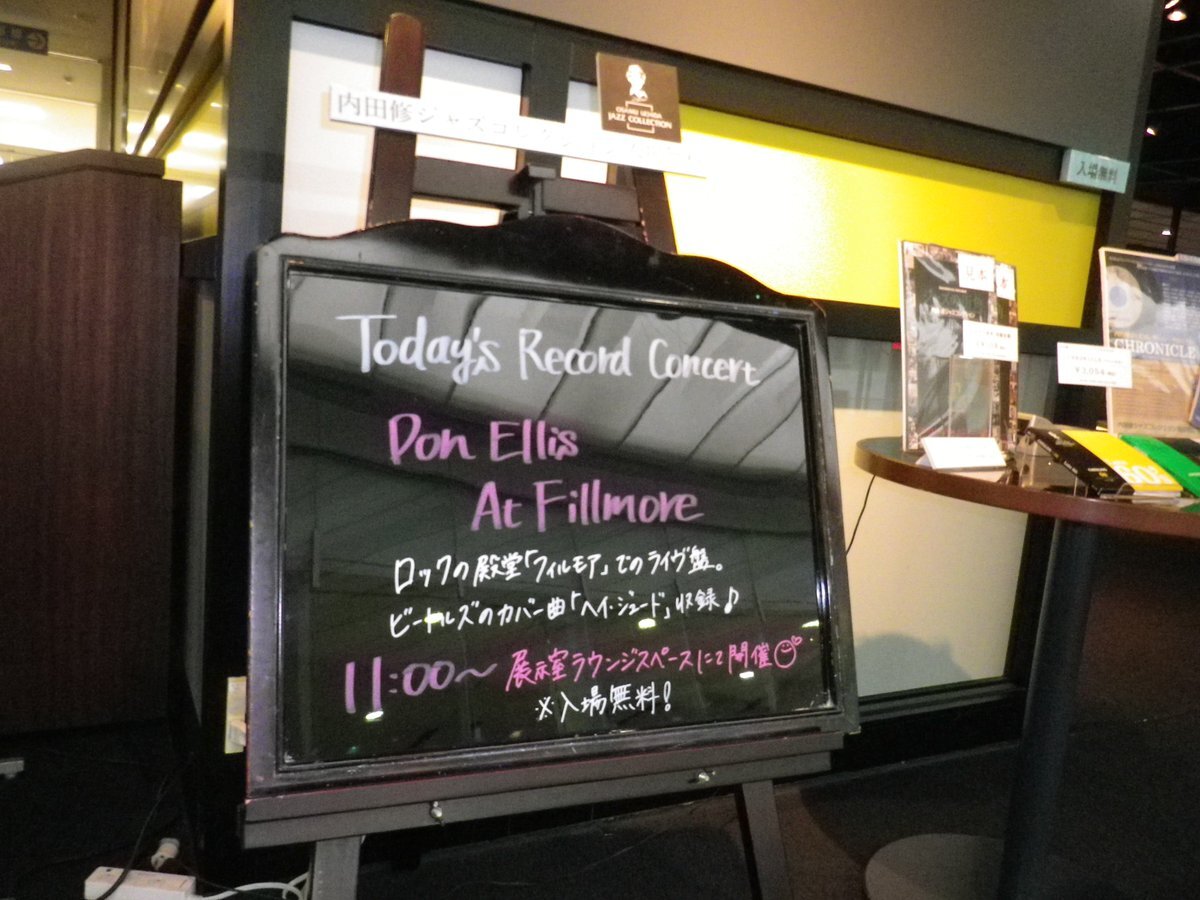 内田修ジャズコレクション
OSAMU UCHIDA
JAZZ COLLECTION
入場無料
Today's Record Concert
Don Ellis
At Fillmore
ロックの殿堂「フィルモア」でのライヴ盤。
ビートルズのカバー曲「ヘイ・ジュード」収録♪
11:00〜 展示室ラウンジスペースにて開催
※入場無料!
見本
CHRONICLE
¥3,054